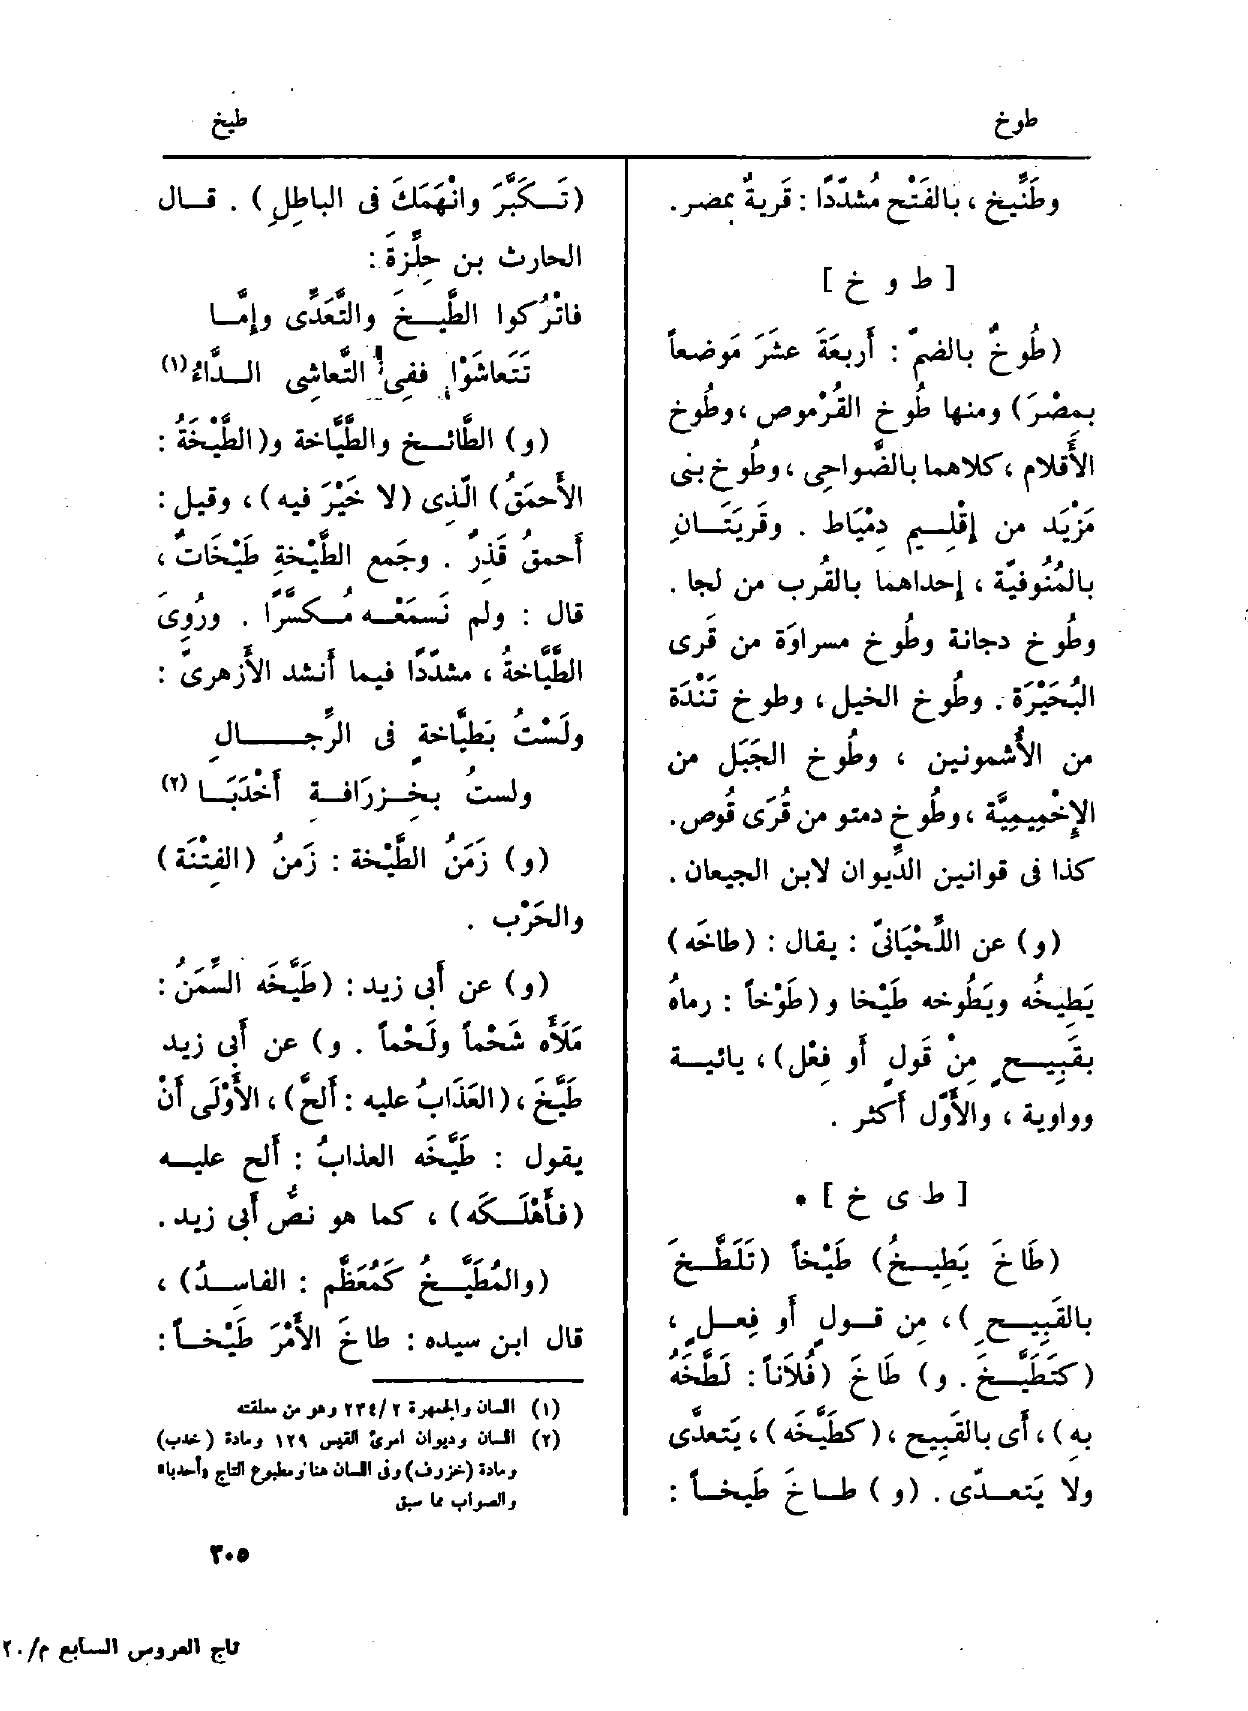 طوخ
طيخ
وطَنِّيخ ، بالفَتْح مُشدّدًا : قَريةٌ بمصر.
[ ط و خ ]
(طُوخٌ بالضمّ : أَربعَةَ عشَرَ مَوضعاً
بمِصْرَ) ومنها طُوخ القُرْموص ، وطُوخ
الأَقلام ، كلاهما بالضَّواحِى ، وطُوخ بنى
مَزْيَد من إِقْلِيم دِمْيَاط . وقَريَتَانِ
بالمُنُوفيّة ، إحداهما بالقُرب من لجا .
وطُوخ دجانة وطُوخ مسراوَة من قُرى
البُحَيْرَة . وطُوخ الخيل ، وطوخ تَنْدَة
من الأُشمونين ، وطُوخ الجَبَل من
الإِخْمِيمِيَّة ، وطُوخ دمتو من قُرَى قُوص.
كذا فى قوانين الدِّيوان لابن الجيعان .
(و) عن اللِّحْيَانىّ : يقال : (طاخَه)
يَطِيخُه ويَطُوخه طَيْخا و(طَوْخاً : رماهُ
بقَبِيحٍ مِنْ قَولٍ أَو فِعْل) ، يائية
وواوية ، والأَوّل أَكثر .
[ ط ى خ ] *
(طَاخَ يَطِيخُ) طَيْخاً (تَلَطَّخَ
بالقَبِيحِ ) ، مِن قولٍ أَو فِعلٍ ،
(كتَطَيَّخَ . و) طَاخَ (فُلَاناً : لَطَّخَهُ
به) ، أَى بالقَبِيح ، (كطَيَّخَه) ، يَتعدَّى
ولا يَتعدّى . (و) طاخَ طَيخاً :
(تَكَبَّرَ وانْهَمَكَ فى الباطِلِ) . قال
الحارث بن حِلِّزَةَ :
فاتْرُكوا الطَّيخَ والتَّعَدِّى وإِمَّا
تَتَعاشَوْا ففِى التَّعاشِى الدَّاءُ (١)
(و) الطَّائخ والطَّيَّاخة و(الطَّيْخَةُ :
الأَحمَقُ) الّذِى (لا خَيْرَ فيه) ، وقيل :
أَحمقُ قَذِرٌ . وجَمع الطَّيْخةِ طَيْخَاتٌ ،
قال : ولم نَسمَعْه مُكسَّرًا . ورُوِىَ
الطَّيَّاخةُ ، مشدّدًا فيما أَنشد الأَزهرىّ :
ولَسْتُ بطَيَّاخةٍ فى الرِّجالِ
ولستُ بخِزرَافةٍ أَخْدَبَا (٢)
(و) زَمَنُ الطَّيْخة : زَمنُ (الفِتْنَة)
والحَرْب .
(و) عن أَبى زيد : (طَيَّخَه السِّمَنُ :
مَلَأَه شَحْماً ولَحْماً . و) عن أَبى زيد
طَيَّخَ ، (العَذَابُ عليه : أَلحَّ) ، الأَوْلَى أَنْ
يقول : طَيَّخَه العذابُ : أَلح عليه
(فأَهْلَكَه) ، كما هو نصُّ أَبى زيد .
(والمُطَيَّخُ كمُعَظَّمٍ : الفاسدُ) ،
قال ابن سيده : طاخَ الأَمْرَ طَيْخاً :
(١) اللسان والجمهرة ٢/ ٢٣٤ وهو من معلقته
(٢) اللسان وديوان امرئ القيس ١٢٩ ومادة (خدب)
ومادة (خزرف) وفى اللسان هنا ومطبوع التاج «أحدبا»
والصواب مما سبق
٣٠٥
تاج العروس السابع م/٢٠